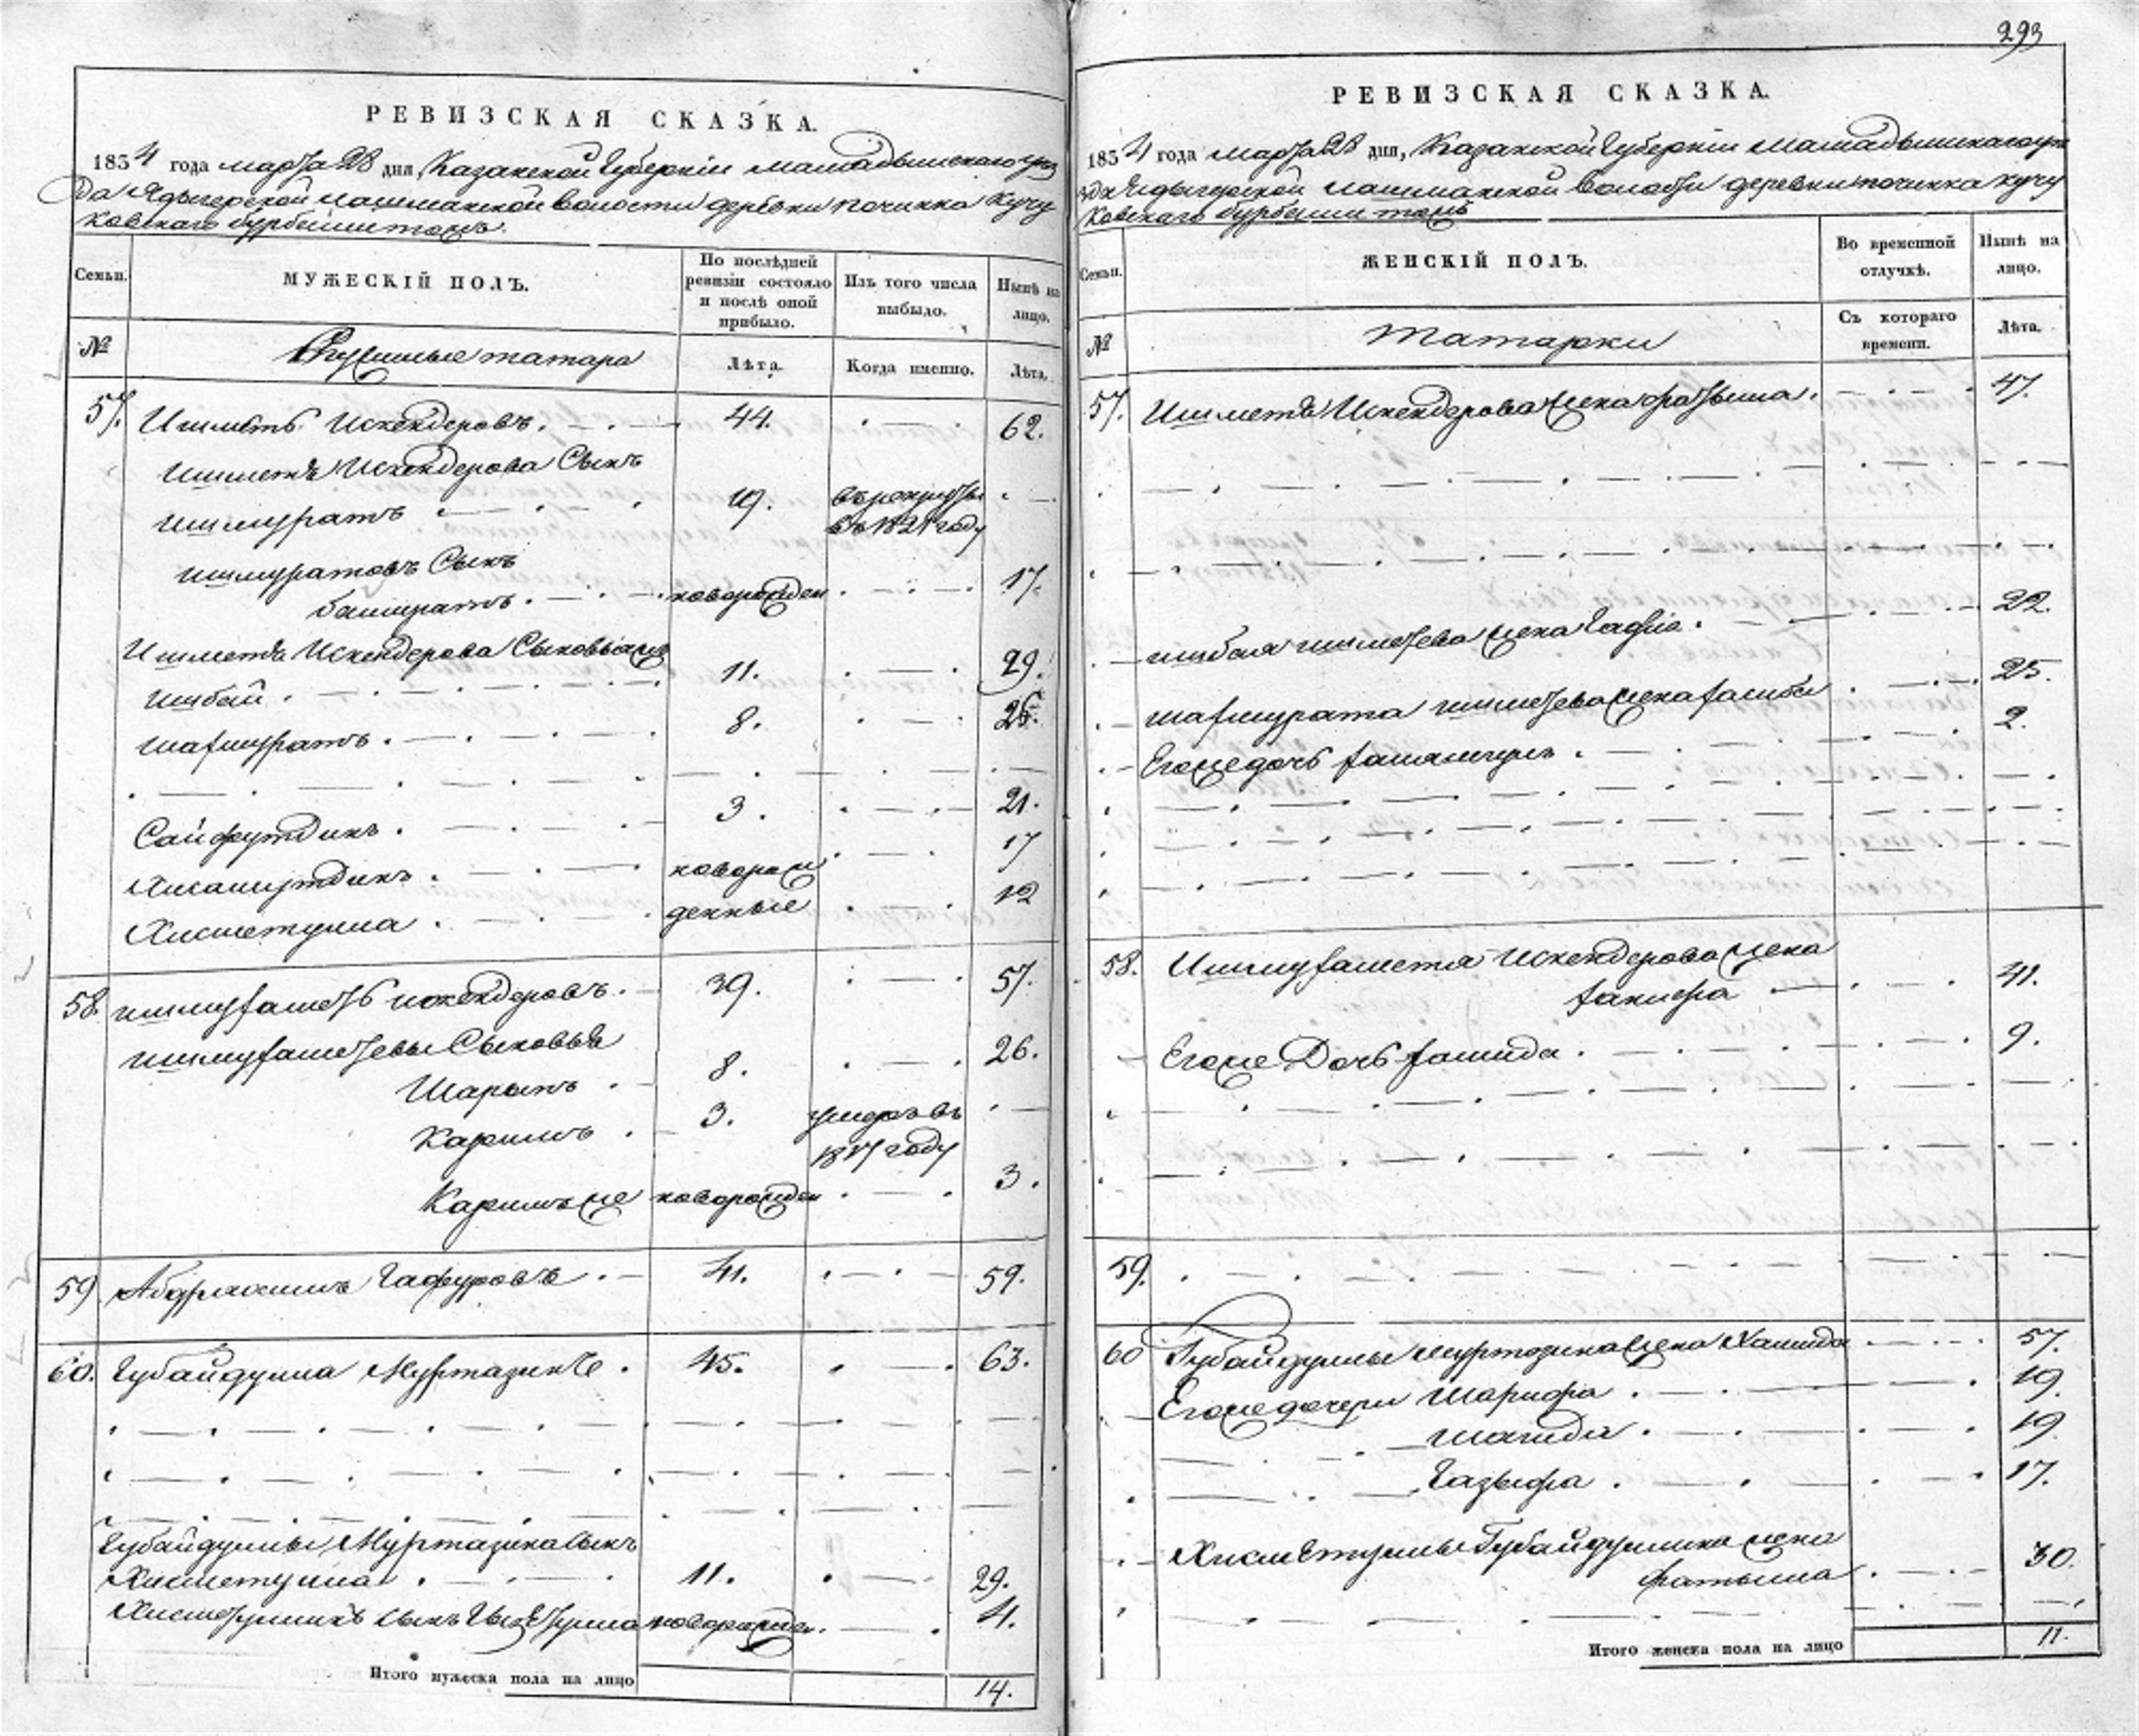 293
РЕВИЗСКАЯ СКАЗКА.
1834 года марта 28 дня, Казанской Губерніи мамадышскаго уез
да Ядыгерской лашманской волости деревни починка Кучу
ковскаго бурбашитожъ.
Семьи.
МУЖЕСКІЙ ПОЛЪ.
По послѣдней ревизіи состояло и послѣ оной прибыло.
Изъ того числа выбыло.
Нынѣ на лицо.
№
татара
Лѣта.
Когда именно.
Лѣта.
57. Ишметь Искендеровъ. 44. 62.
Ишметя Искендерова Сынъ
ишмуратъ 19. въ рекруты
въ 1821 году
ишмуратовъ Сынъ
башаратъ. новорожден 17.
Ишметя Искендерова Сыновья же
ишбай. 11. 29.
шагмуратъ. 8. 26.
Сайфутдинъ. 3. 21.
Хисамутдинъ. новорож 17
Хисметулла. денные 12
58. ишмухаметь искендеровъ. 39. 57.
ишмухаметевы Сыновья
Шарыпъ 8. 26.
Каримъ 3. умеръ въ
1817 году
Каримъ же новорожден 3.
59 Абдрахимъ Гафуровъ. 41. 59.
60. Губайдулла Муртазинъ. 45. 63.
Губайдуллы Муртазина сынъ
Хисметулла. 11. 29.
Хисметуллинъ сынъ новорожден. 4.
Итого мужеска пола на лицо 14.
РЕВИЗСКАЯ СКАЗКА.
1834 года марта 28 дня, Казанской Губерніи мамадышскаго уез
да Ядыгерской лашманской волости деревни починка кучу
ковскаго бурбашитожъ
Семьи.
ЖЕНСКІЙ ПОЛЪ.
Во временной отлучкѣ.
Нынѣ на лицо.
№
Татарки
Съ котораго времени.
Лѣта.
57. Ишметя Искендерова жена фатыма. 47.
ишбая ишметева жена Гафia. 22.
шагмурата ишметева жена 25.
Егоже дочь 2.
58. Ишмухаметя Искендерова жена
41.
Егоже Дочь хамида. 9.
59.
60 Губайдуллы муртозина жена Хамида 57.
Егоже дочери Шарифа. 19.
Шагида. 19
Газыфа. 17.
Хисметуллы Губайдуллина жена
фатыма. 30.
Итого женска пола на лицо 11.